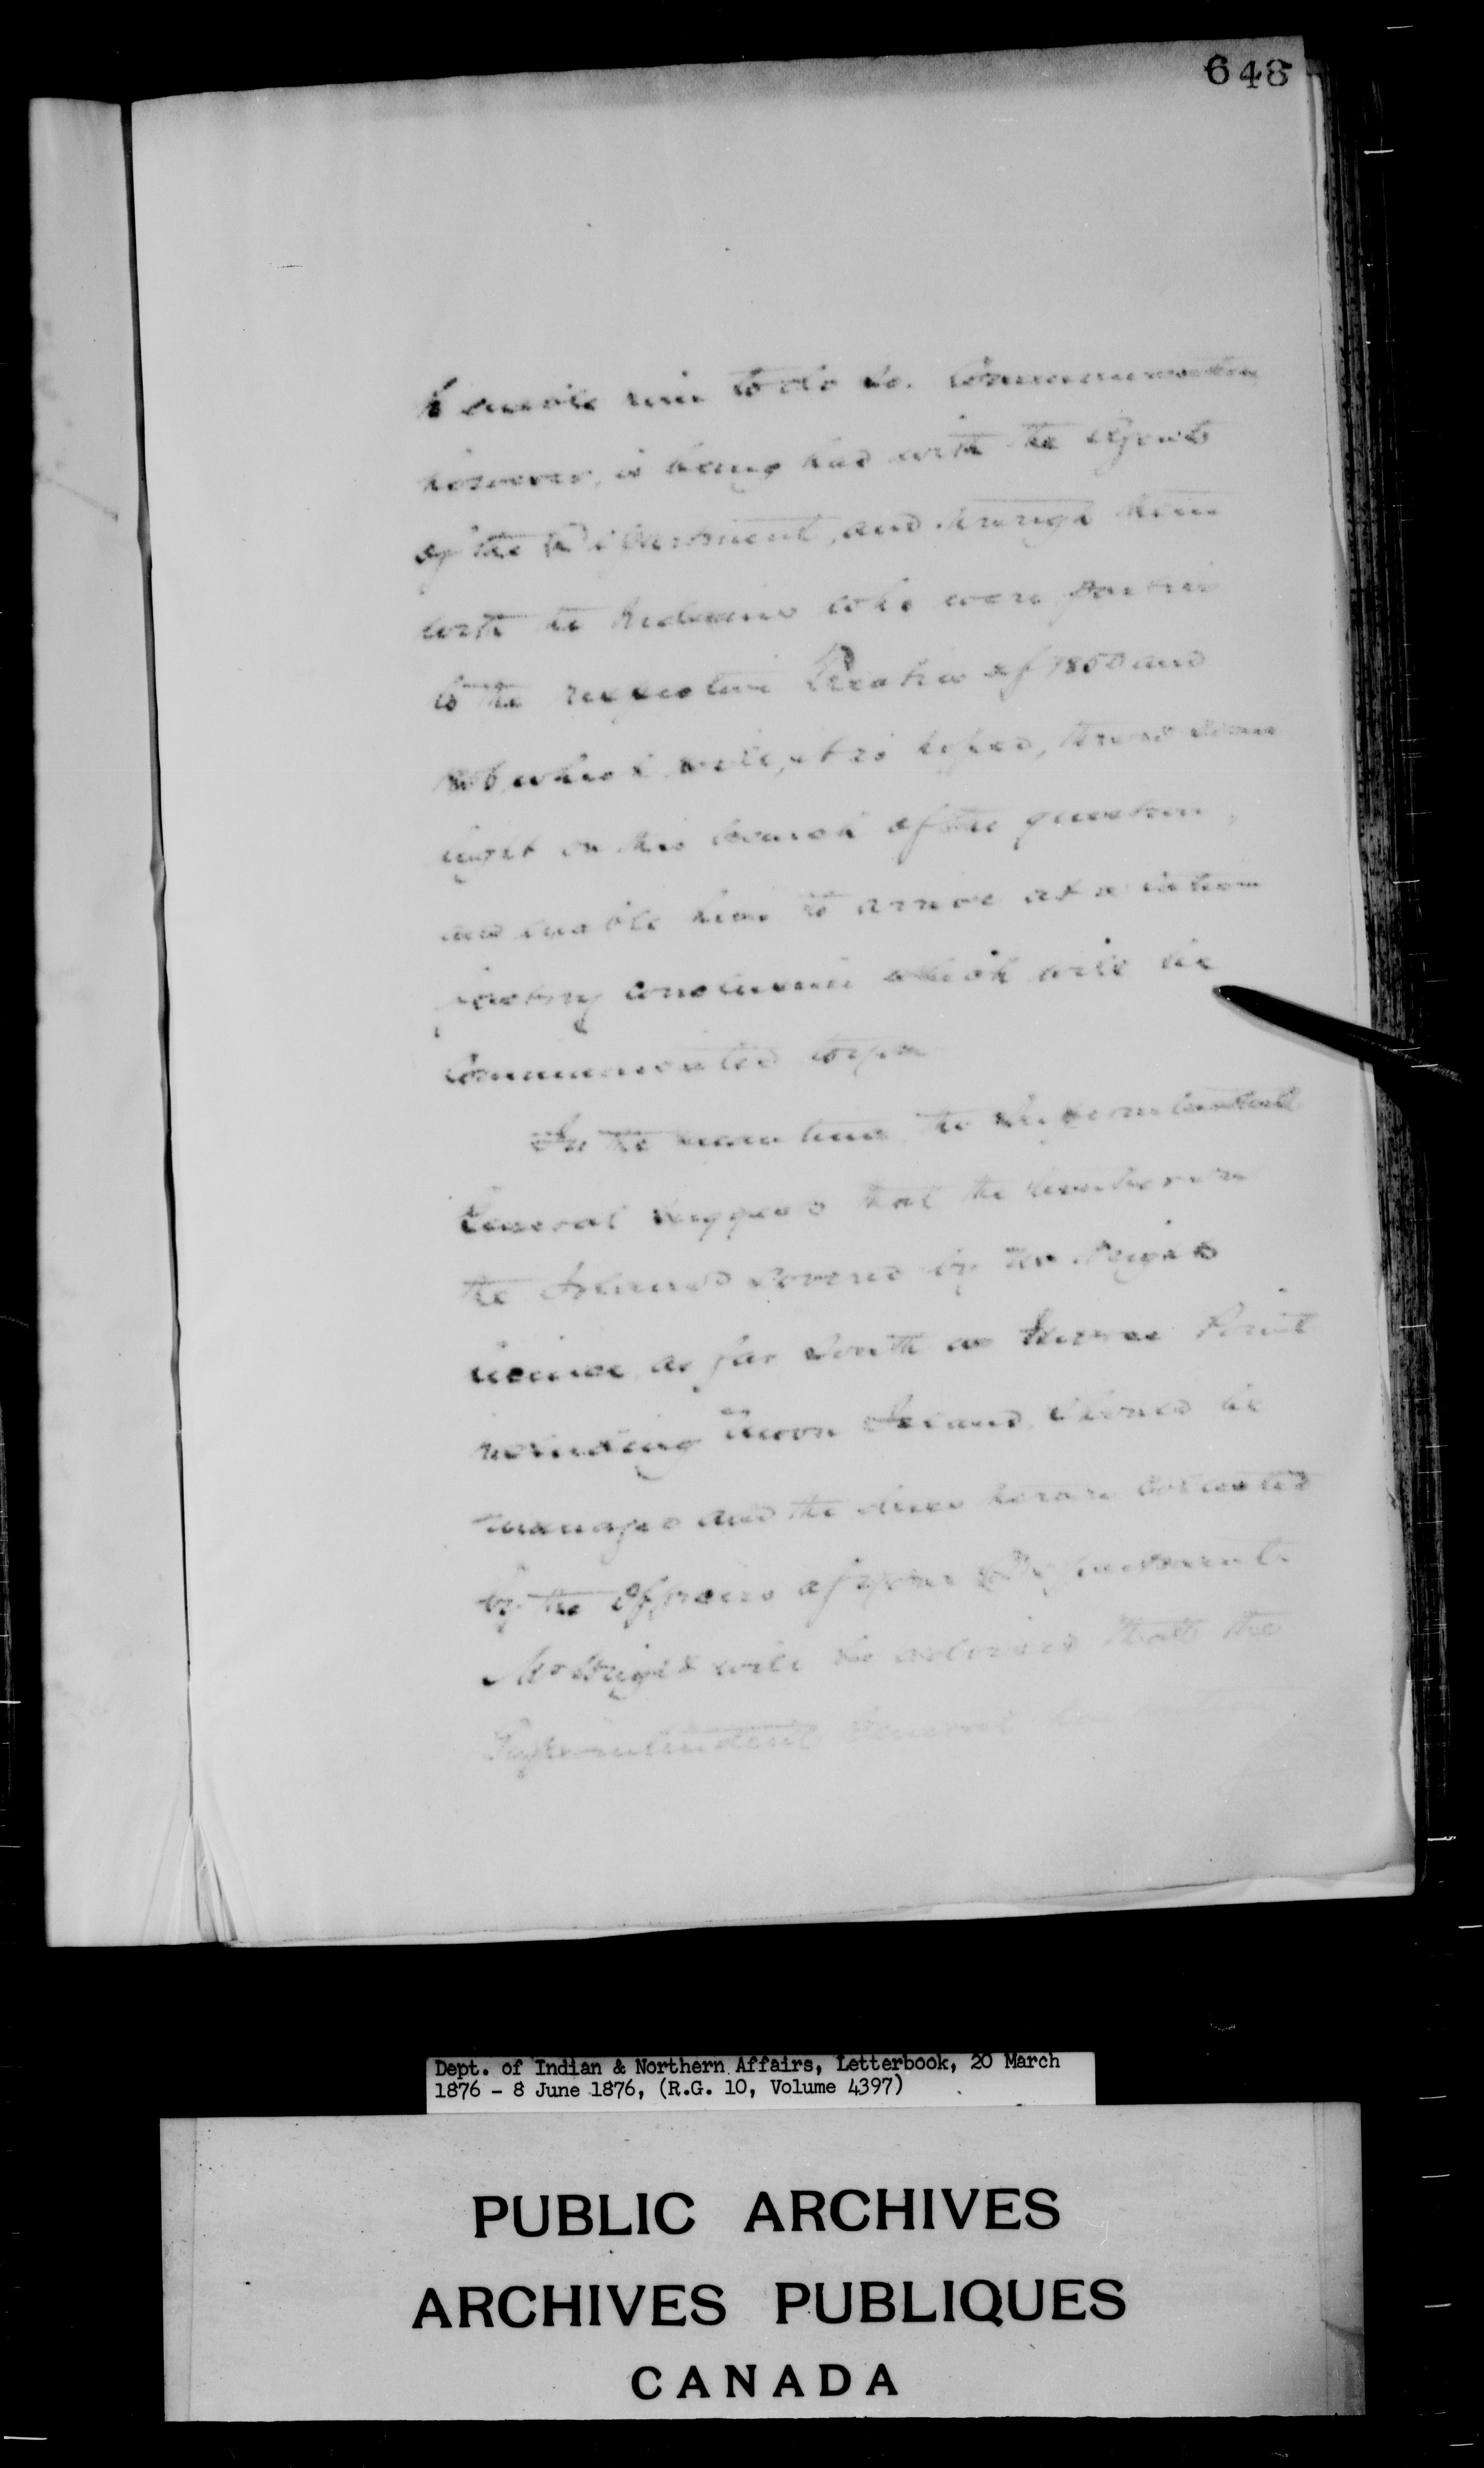 648
to enable him to do so. Communication
however, is being had with the Agents
of the Department, and through them
with the Indians who were parties
to the respective Treaties of 1850 and
which will, it is hoped, throw some
light on this branch of the question,
and enable him to arrive at a satis
factory conclusion which will be
communicated to you
In the mean time, the Superintendent
General suggests that the timber on
the Islands covered by Mr
license, as far South as Point
including Island, should be
managed and the dues thereon collected
by the Officers of your Department.
Mr will be advised that the
Superintendent General has
Dept. of Indian & Northern Affairs, Letterbook, 20 March
1876 - 8 June 1876, (R.G. 10, Volume 4397)
PUBLIC ARCHIVES
ARCHIVES PUBLIQUES
CANADA